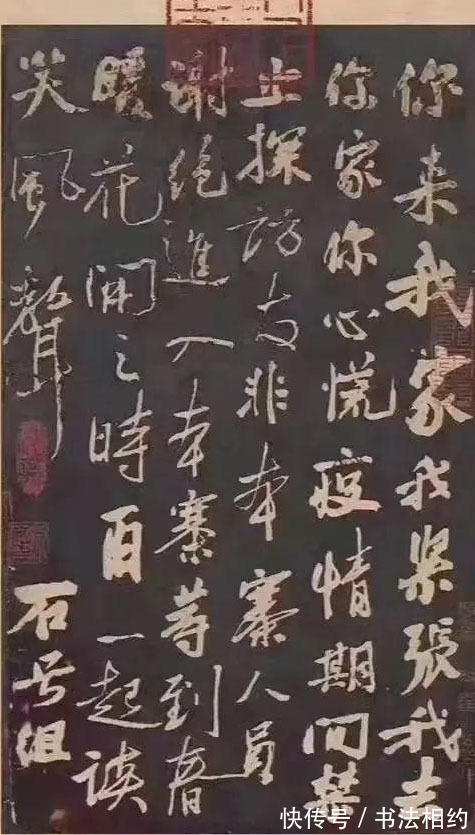 你来我家我紧張我去
你家你心慌疫情期间禁
止探訪友非本寨人員
谢绝進入本寨等到春
暖花開之時再一起谈
笑風聲
石号组
快传号 / 书法相约